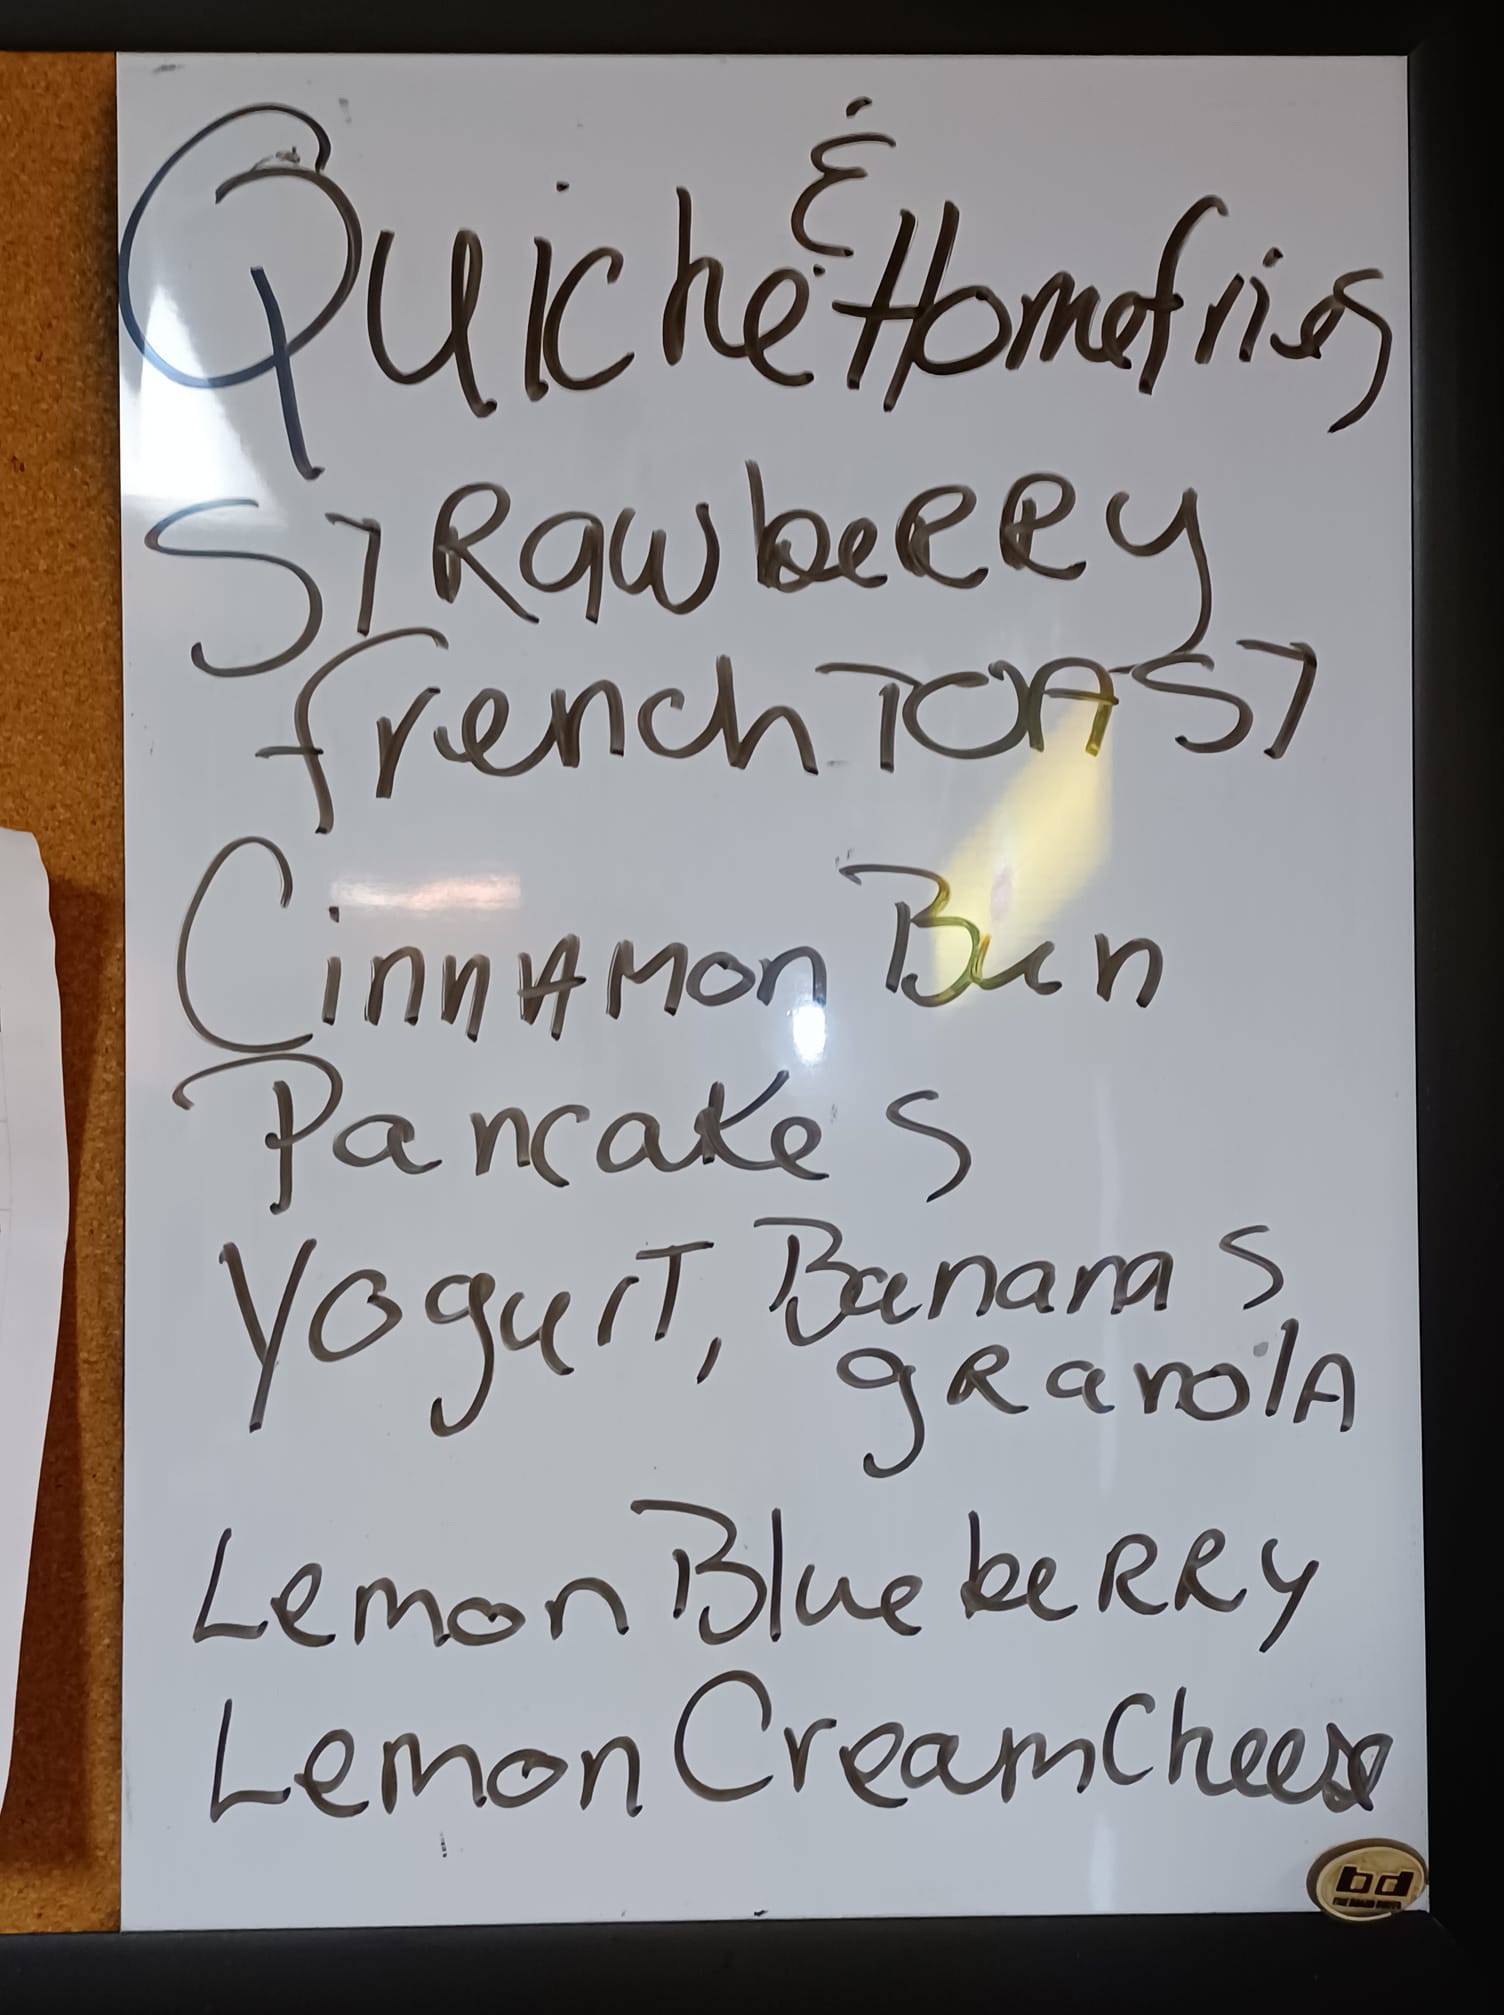 Quiche & Homefries
STRawbeRRy
french TOAST
CinnAMon Bun
Pancakes
YogurT, Bananas
gRanolA
Lemon BluebeRRy
Lemon CreamCheese
bd